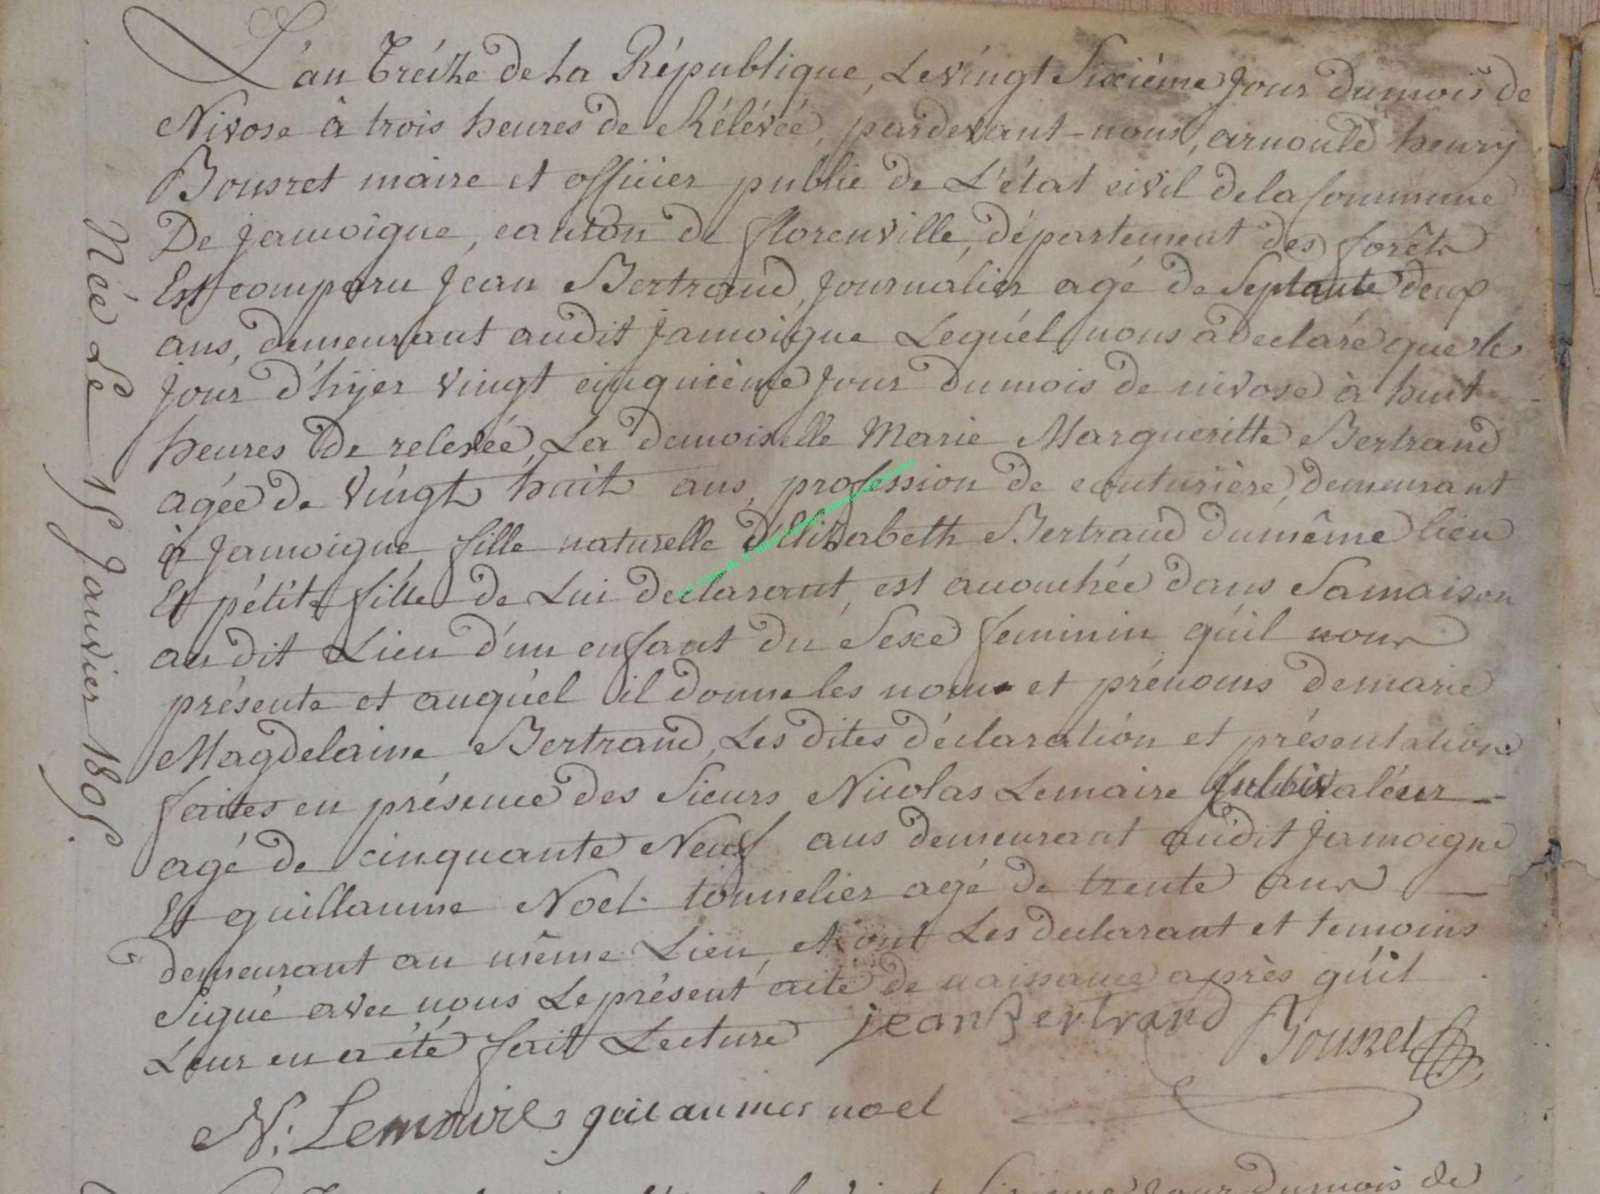 L'an Tréize de La République, Le vingt Sixiéme Jour du mois de
Nivose à trois heures de Rélévée, pardevant-nous, arnould henry
Bousret maire et officier public de L'état civil de la Commune
De Jamoigne, canton de florenville, département des forêts
Est comparu Jean Bertrand, Journalier agé de Septante deux
ans, demeurant audit Jamoigne Lequél nous a déclaré que le
Jour d'hyer vingt cinquième Jour du mois de nivose à huit
heures de relevée, La demoiselle Marie Margueritte Bertrand
agée de vingt huit ans, profession de couturière, demeurant
à Jamoigne, fille naturelle d'Elisabeth Bertrand du même lieu
Et pétite fille de Lui declarant, est accouchée dans Sa maison
au dit Lieu d'un enfant du Sexe feminin qu'il nous
présente et auquél il donne les noms et prénoms de marie
Magdelaine Bertrand, Les dites déclaration et présentation
faites en présence des Sieurs Nicolas Lemaire
agé de cinquante Neuf ans demeurant audit Jamoigne
Et guillaume Noel tonnelier agé de trente ans
demeurant au même Lieu, et ont Les declarant et temoins
Signé avec nous Le présent acte de naissance après qu'il
Leur en a été fait Lecture jean Bertrand Bousret
N: Lemaire guilaumes noel
Née Le 15 Janvier 1805.
du mois de